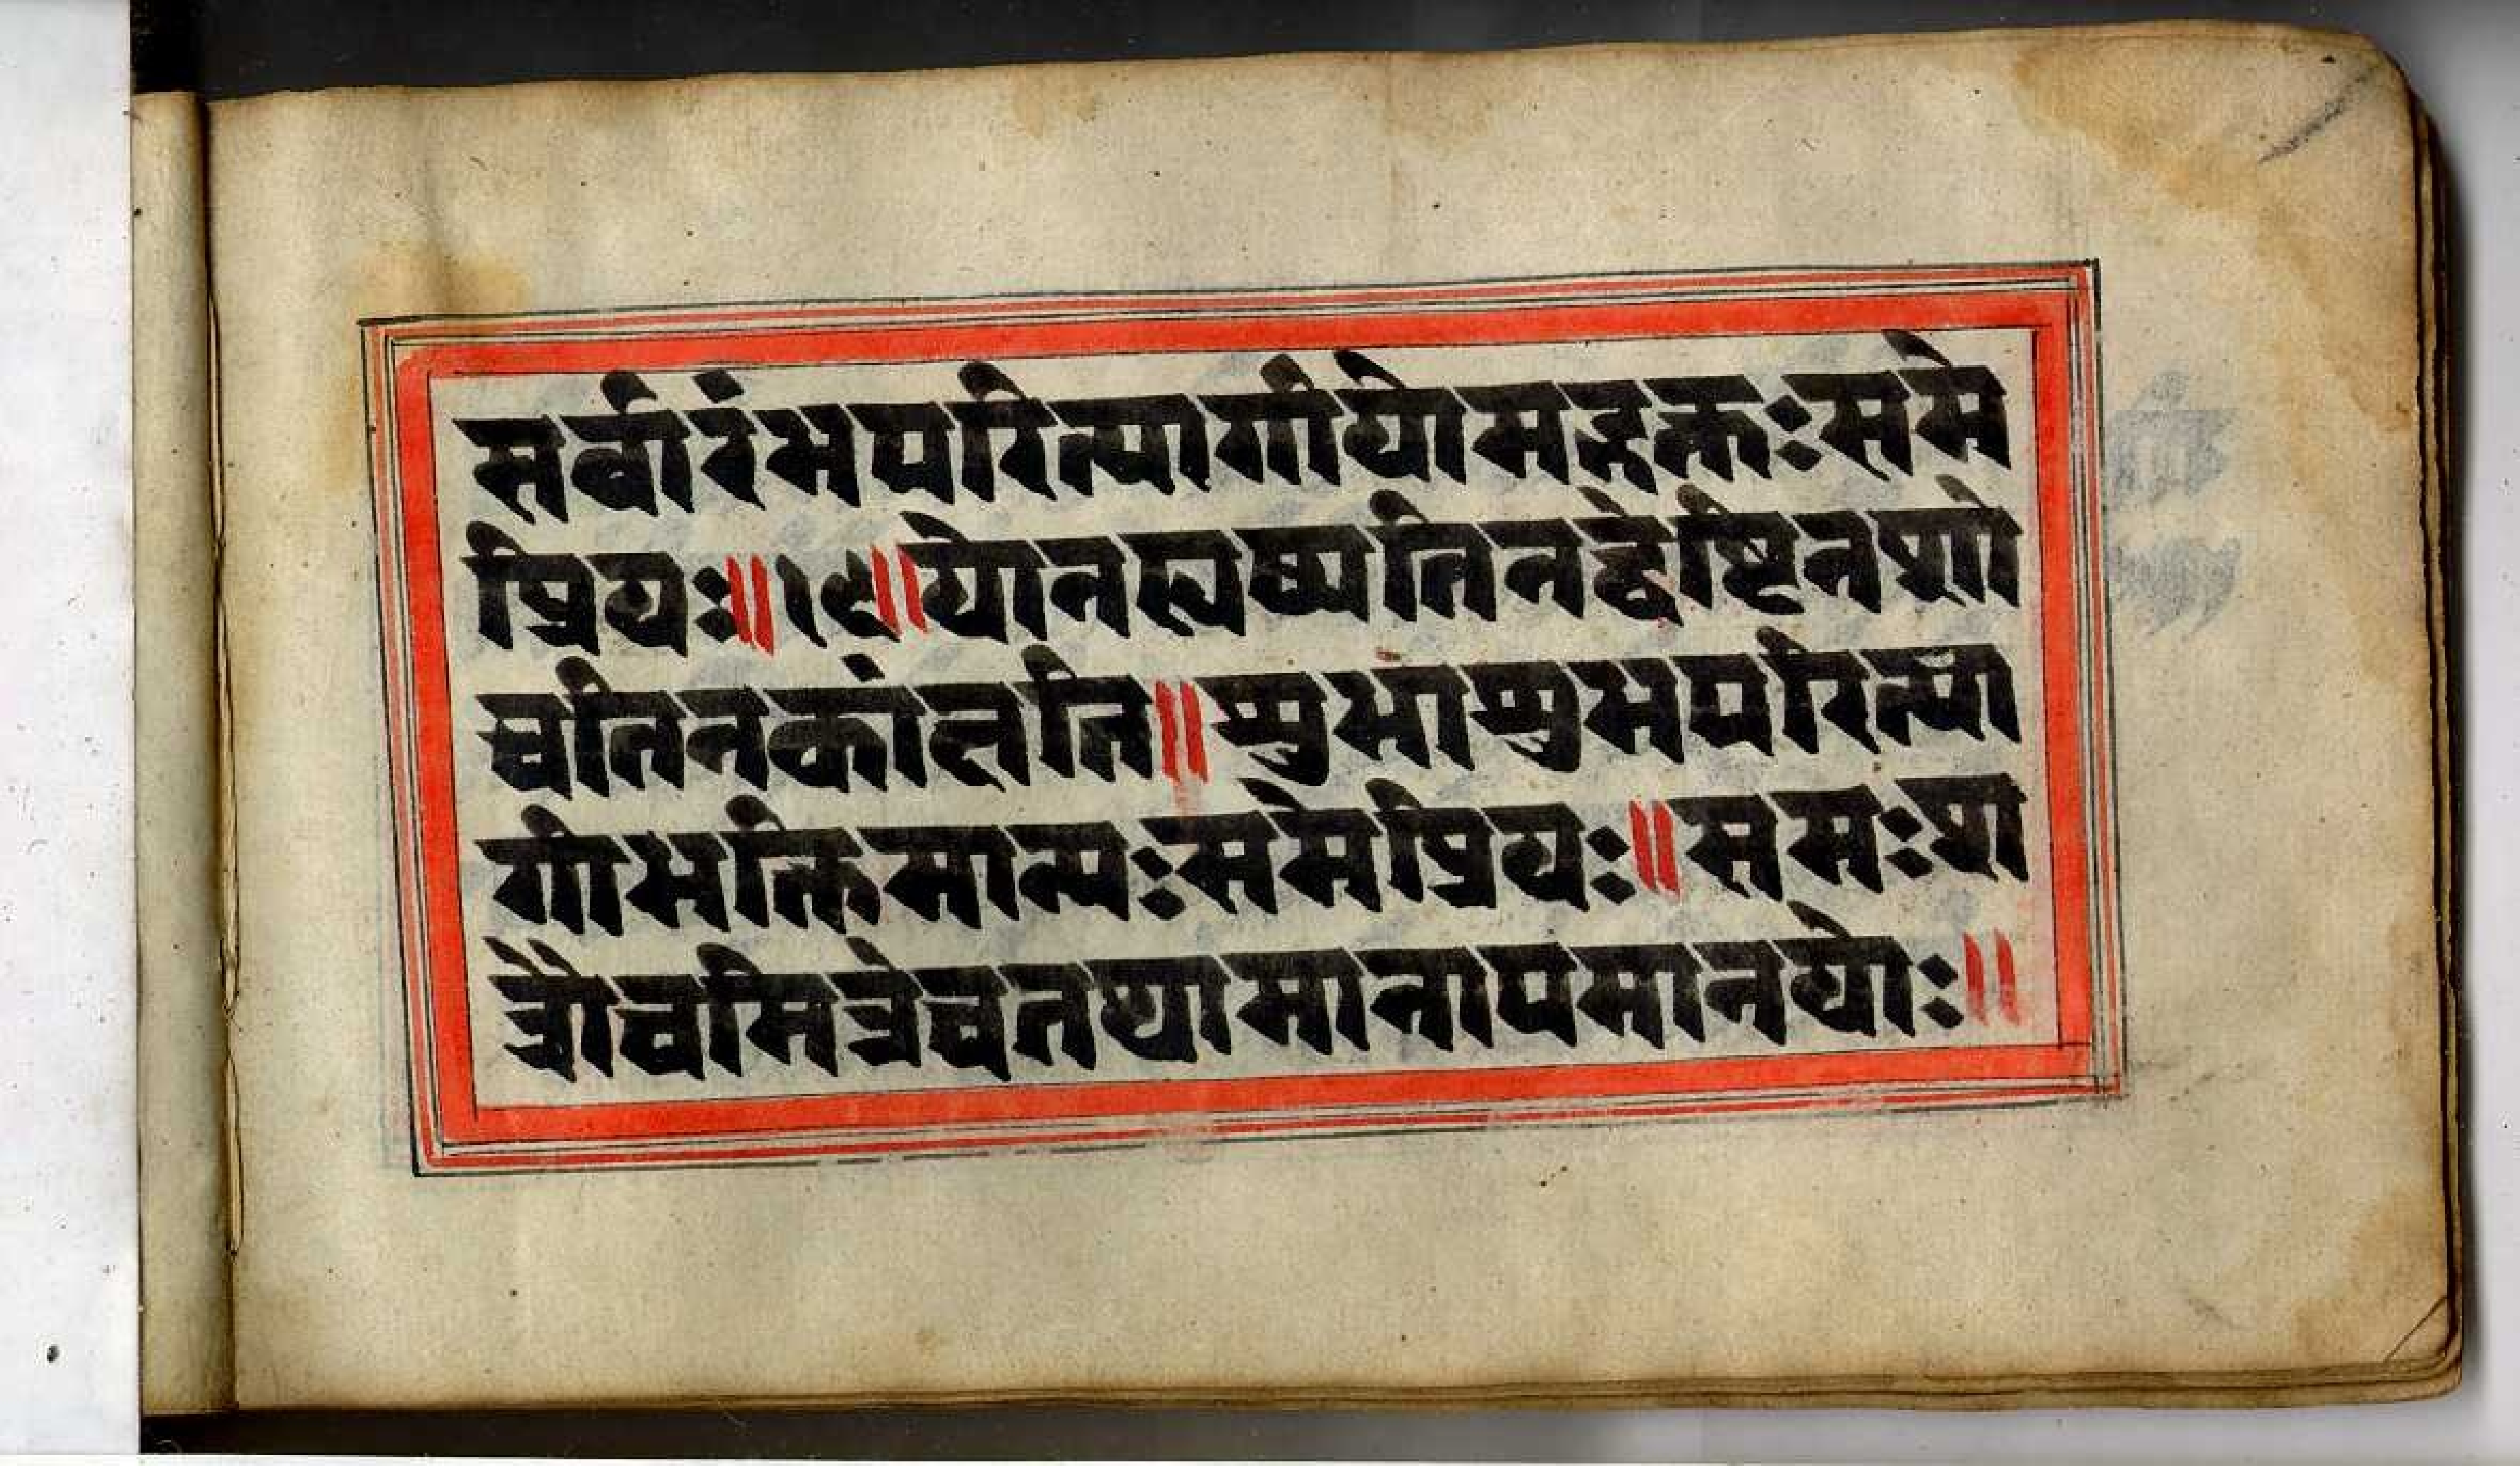 सर्वारंभपरित्यागीयोमद्भक्तः समे
प्रियः॥१९॥योनहृष्यतिनद्वेष्टिनशो
चतिनकांक्षति॥शुभाशुभपरित्या
गीभक्तिमान्यः समेप्रियः॥समःशा
त्रौचमित्रेचतथामानापमानयोः॥